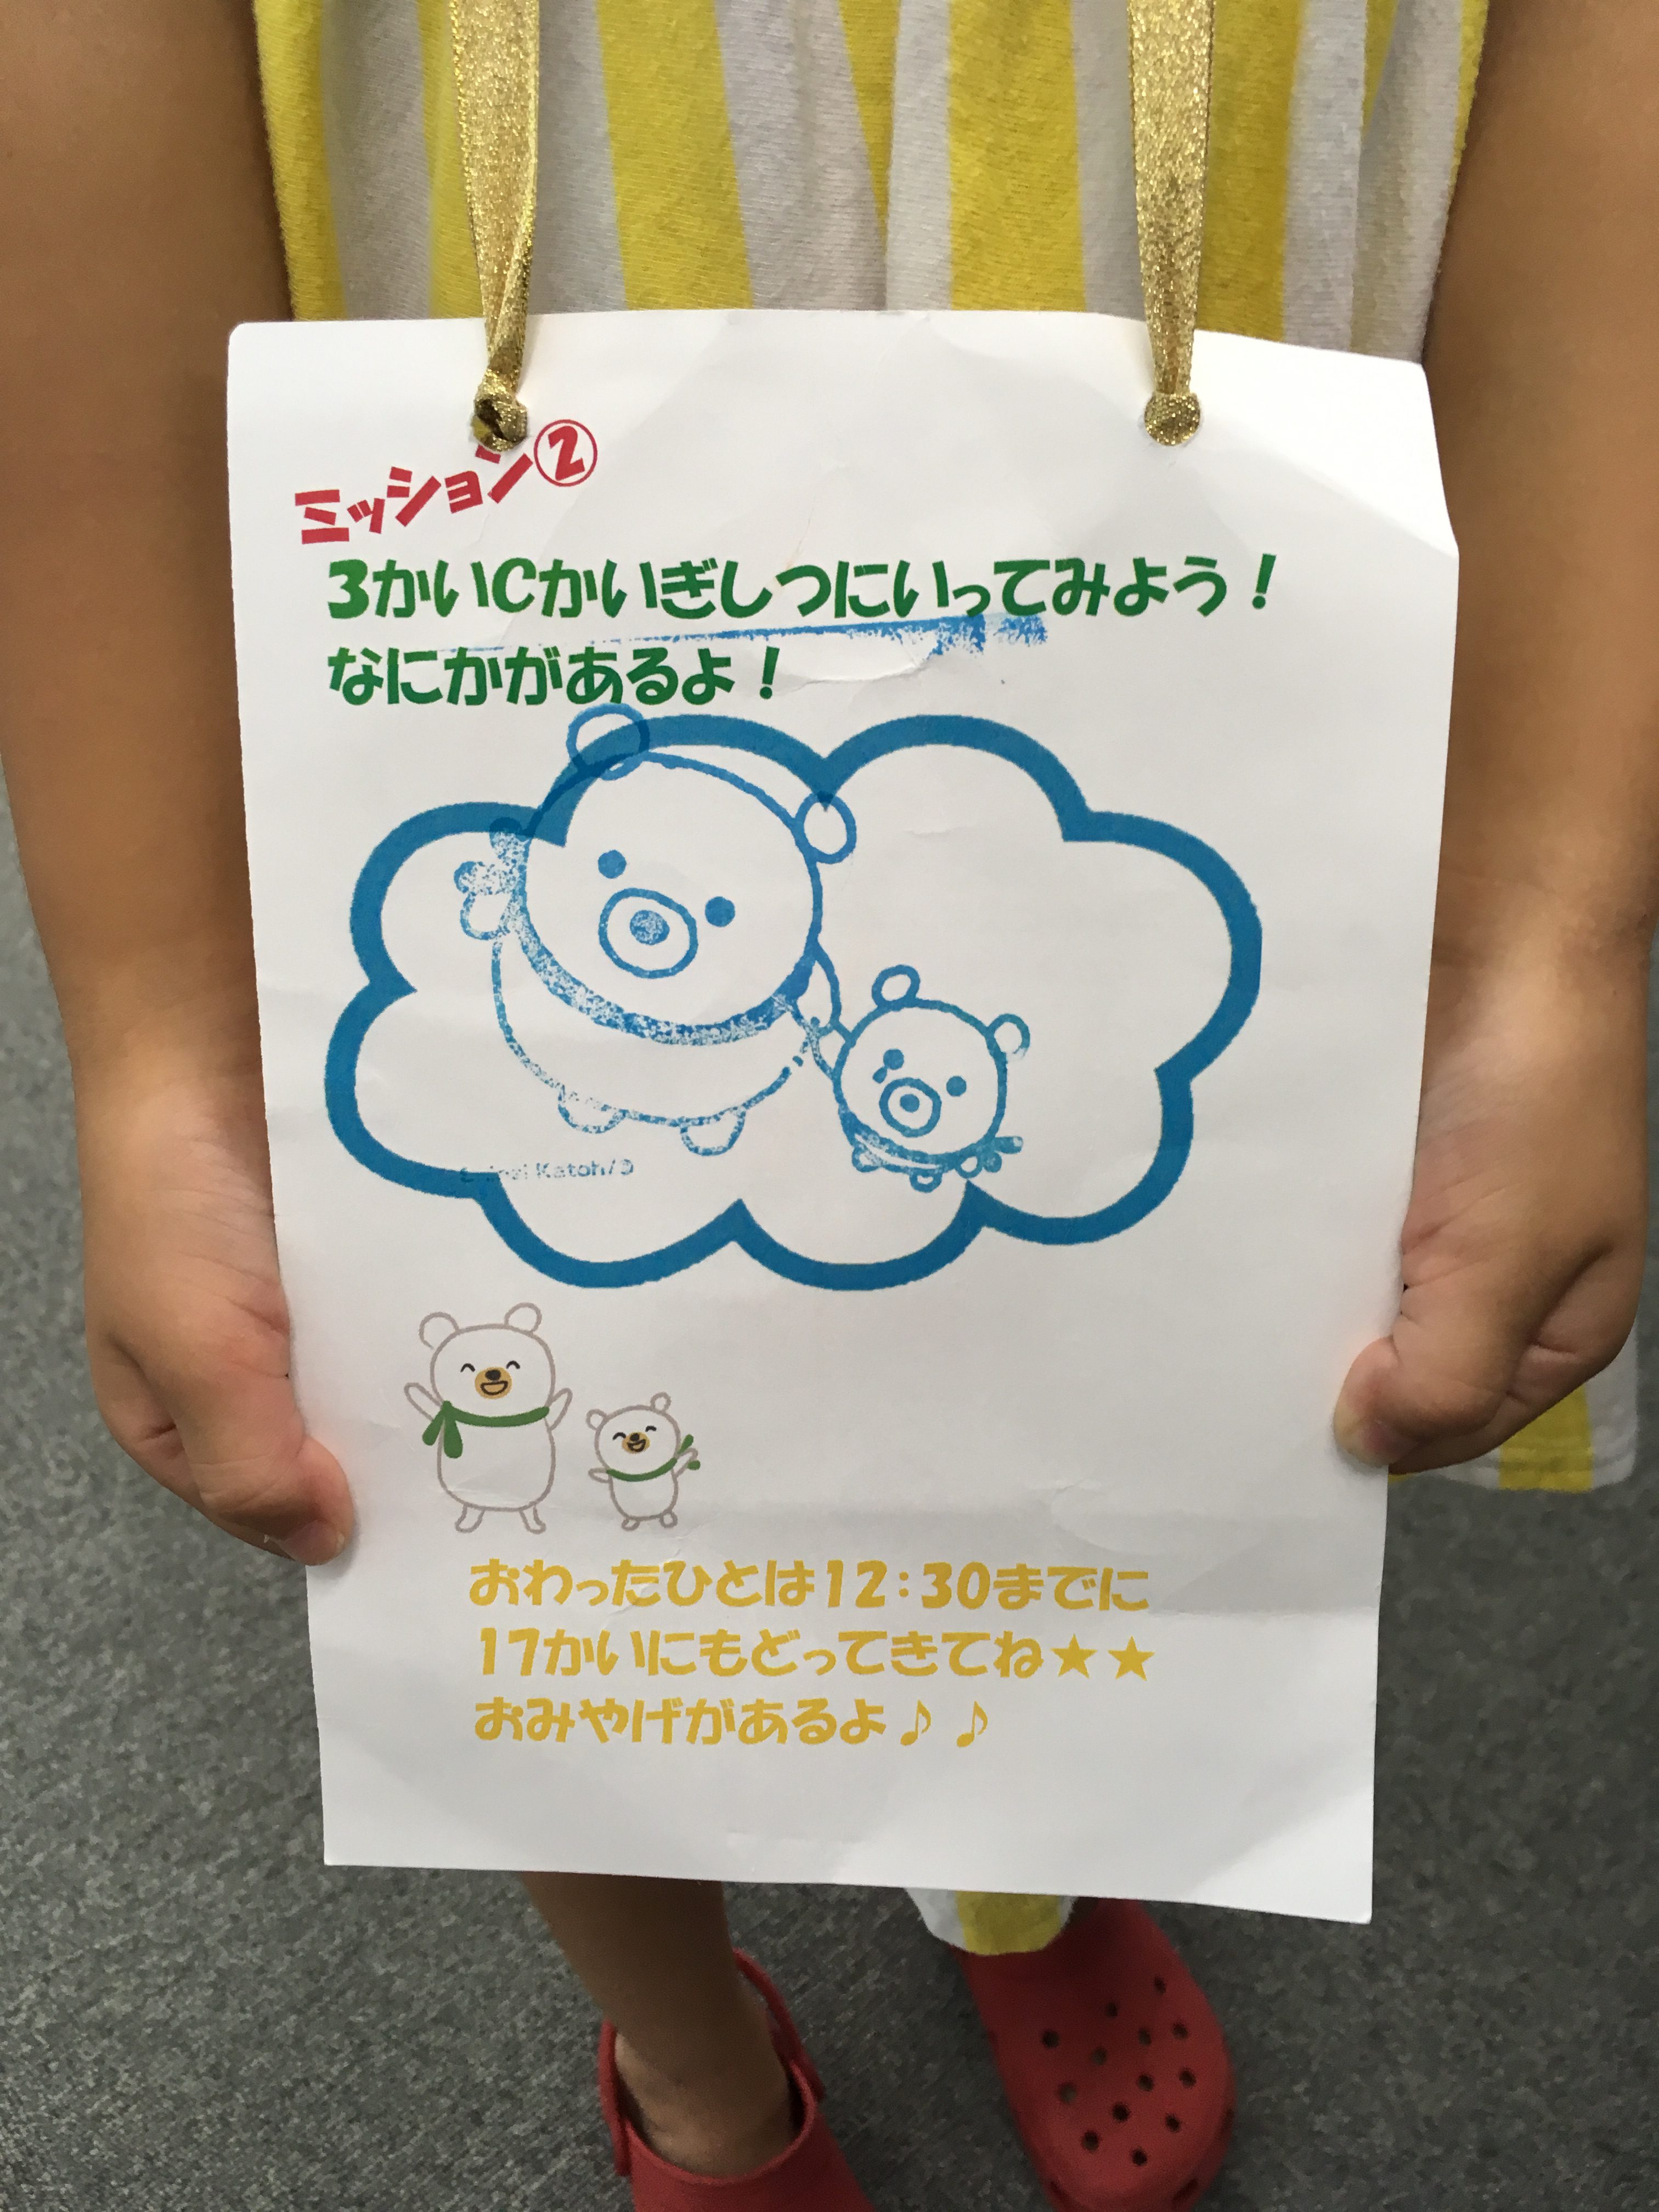 ミッション②
3かいCかいぎしつにいってみよう！
なにかがあるよ！
Katoh
おわったひとは12：30までに
17かいにもどってきてね★★
おみやげがあるよ♪♪